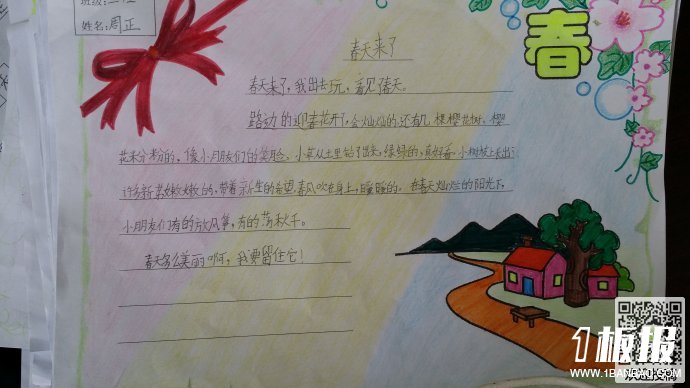 姓名:周正
春
春天来了
春天来了，我出去玩，看见春天。
路边的迎春花开了，金灿灿的还有几棵樱花树、樱
花米分粉的，像小朋友们的笑脸。小草从土里钻了出来，绿绿的，真好看。小树枝上长出
许多新嫩嫩的，带着新生的希望，春风吹在身上，暖暖的。在春天灿烂的阳光下，
小朋友们有的放风筝，有的荡秋千。
春天多么美丽啊，我要留住它！
1板报
WWW.1BANBAO.COM
欢迎投稿